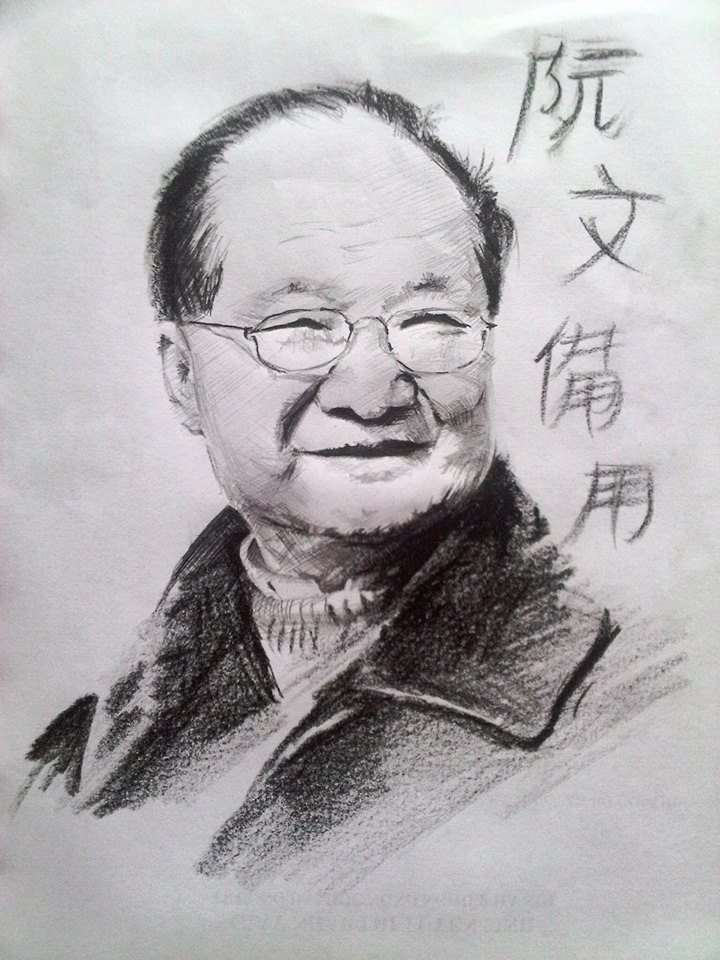 阮
文
備
用